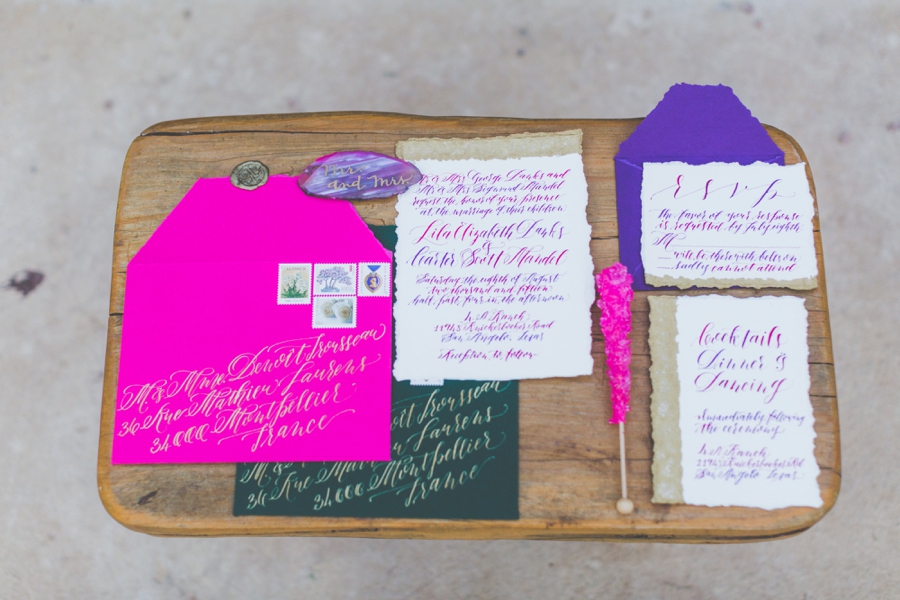 M & Mme Benoît Trousseau
36 Rue Mathieu Laurens
34000 Montpellier
France
Mr.
and Mrs.
Mr & Mrs George Danks and
Mr & Mrs Sigmund Mandel
request the honor of your presence
at the marriage of their children
Lila Elizabeth Danks
&
Carter Scott Mandel
Saturday the eighth of August
two thousand and fifteen
half past four in the afternoon
Ranch
11943 Knickerbocker Road
San Angelo, Texas
Reception to follow
M &
36 Rue Mathieu Laurens
34000 Montpellier
France
RSVP
the favor of your response
is requested by July eighth
M
will be there with bells on
sadly cannot attend
Cocktails
Dinner &
Dancing
immediately following
the ceremony
Ranch
11943 Knickerbocker Rd
San Angelo, Texas